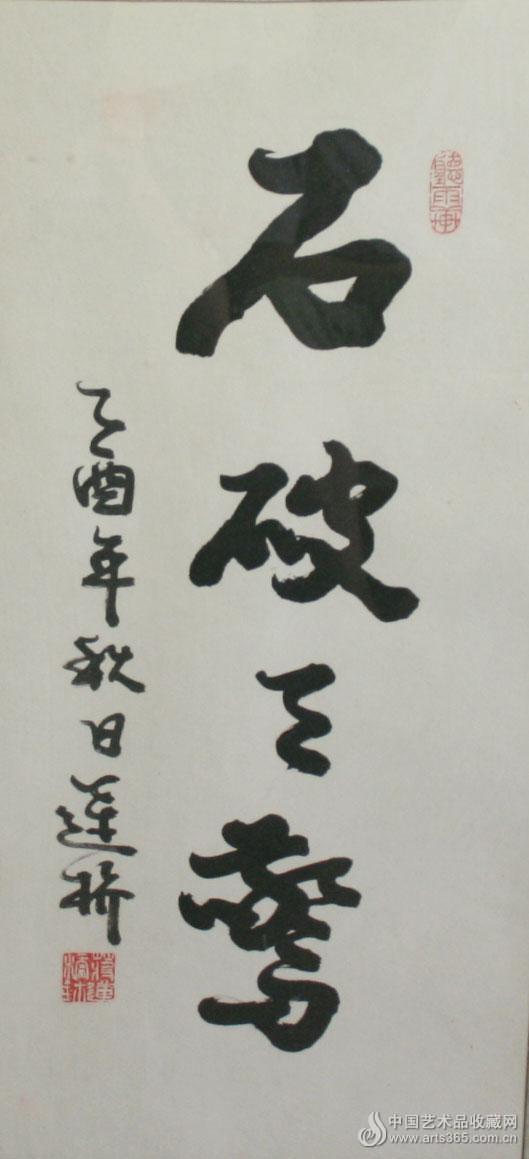 石破天驚
乙酉年秋日蓮桥
中国艺术品收藏网
www.arts365.com.cn